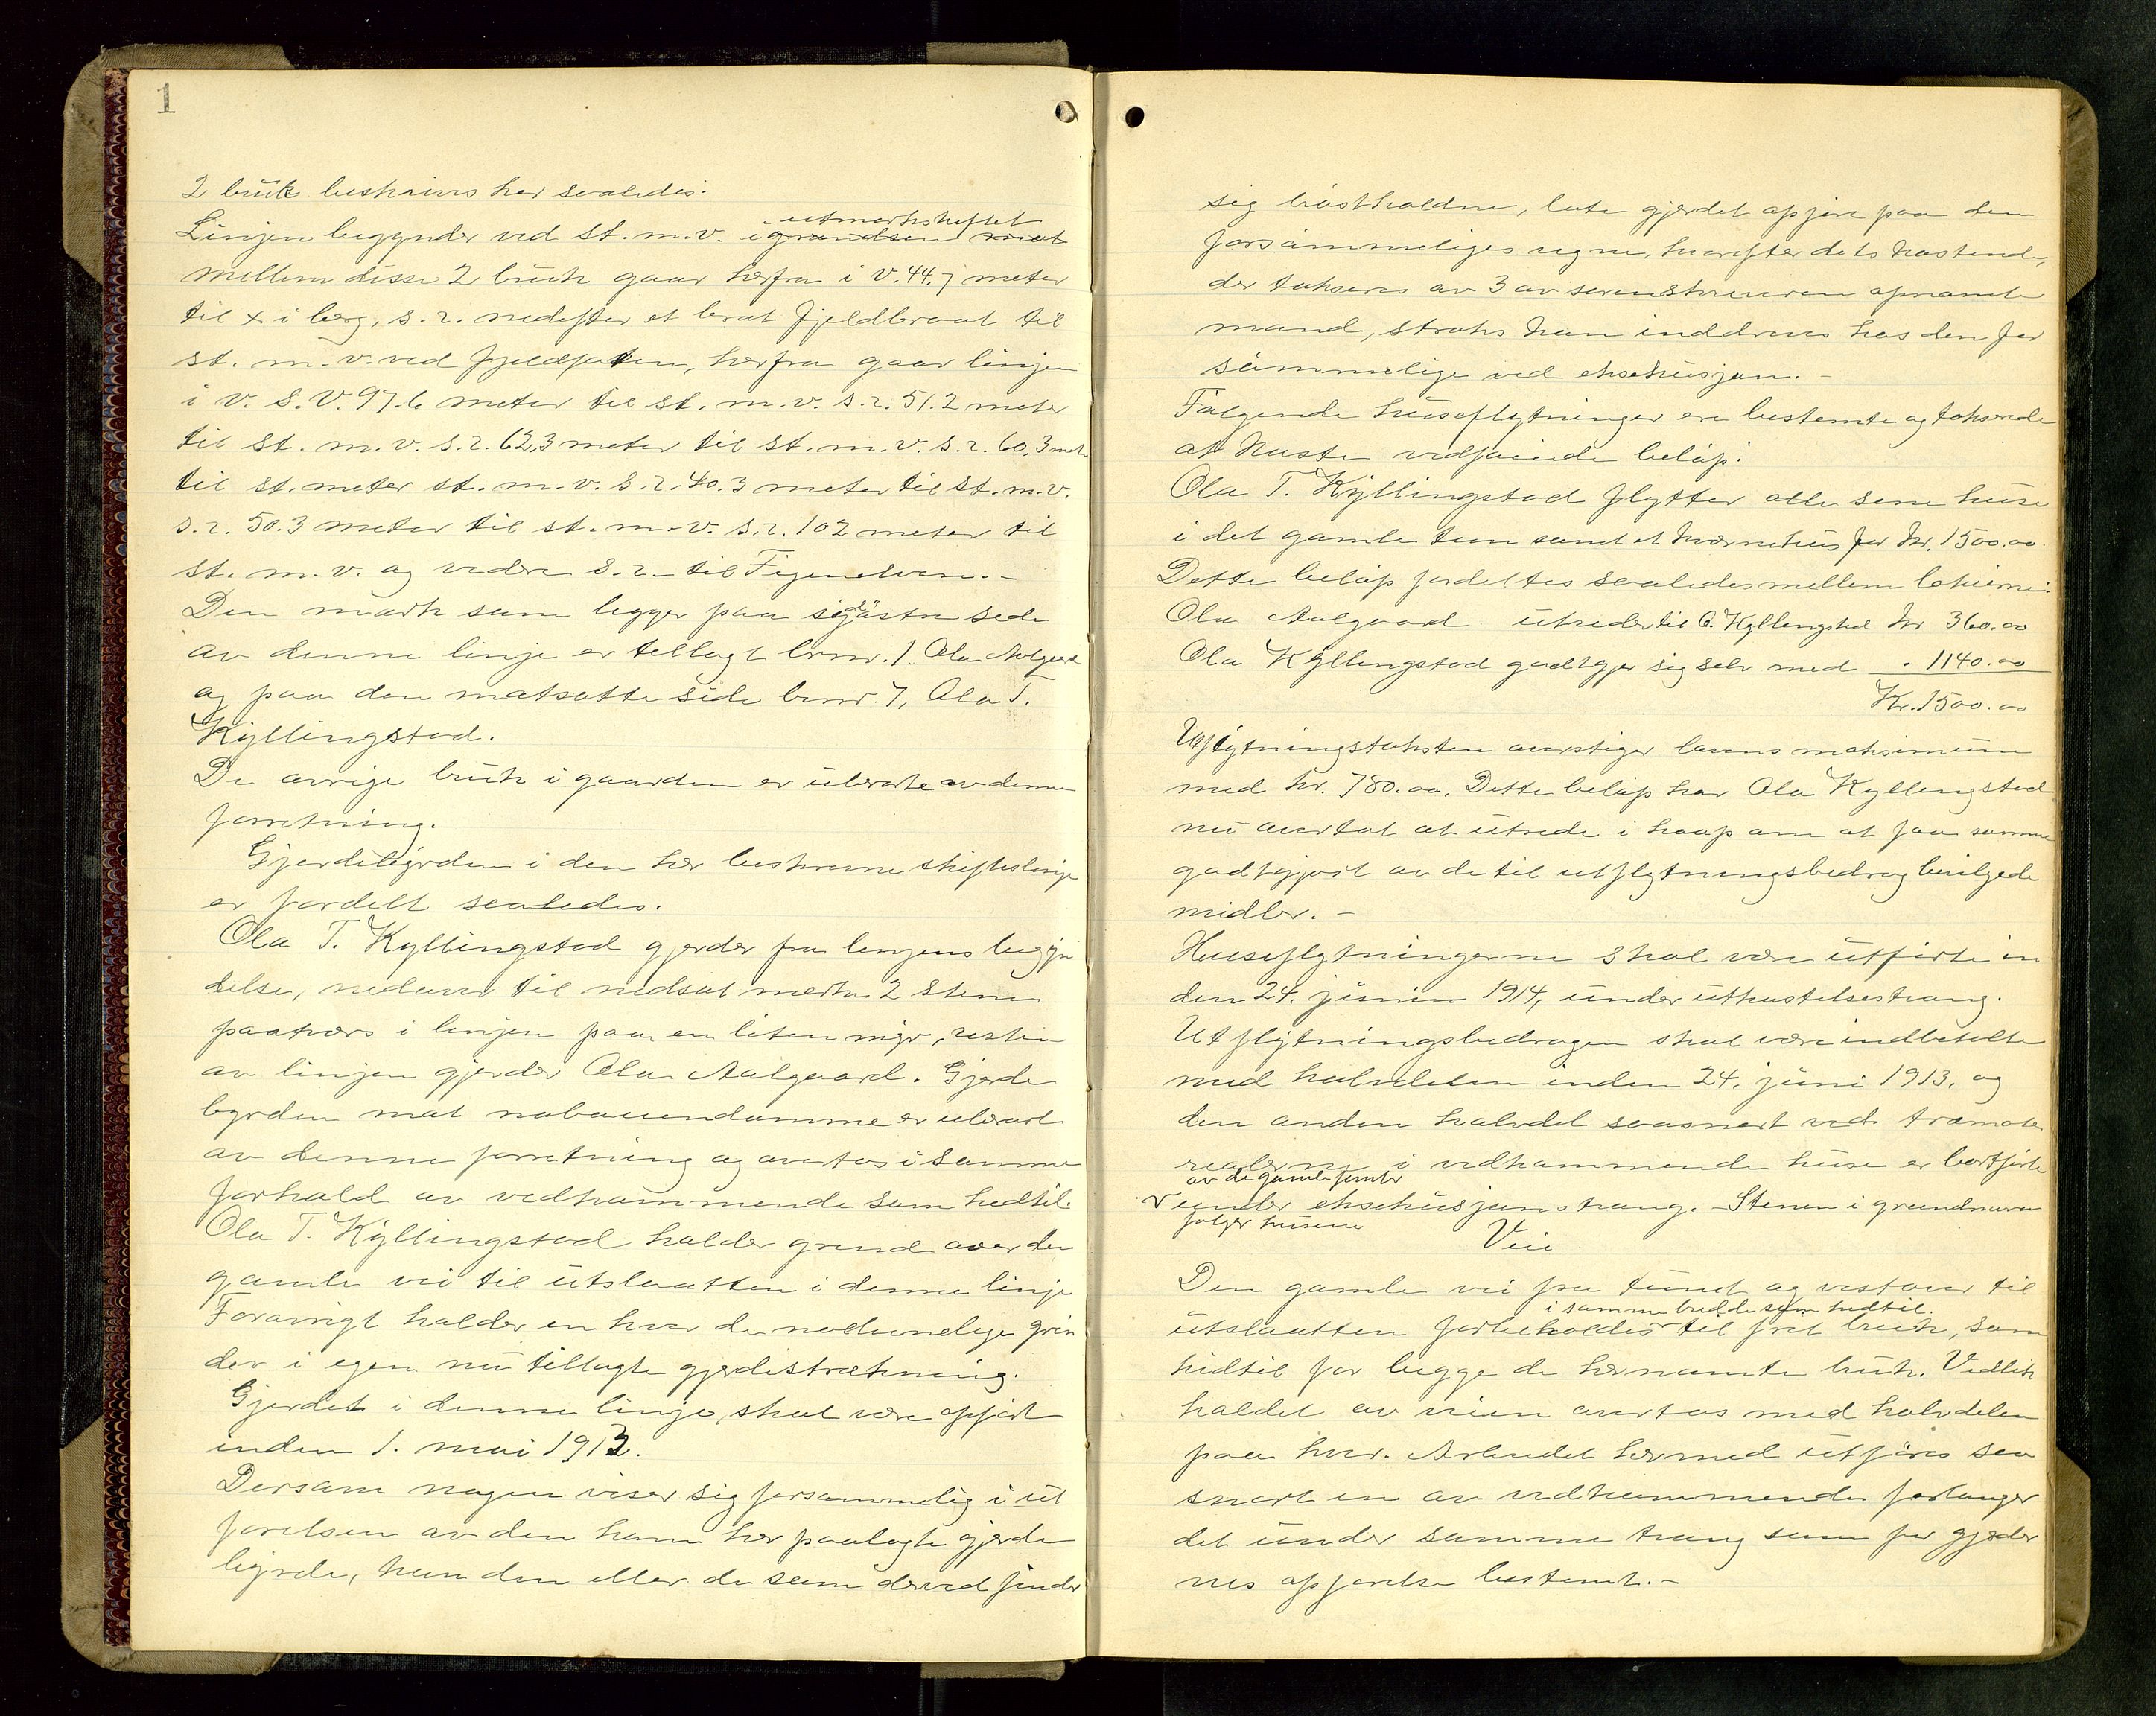 1
2 bruk beskrives her saaledes.
utmarksskiftet
Linjen begynder ved st. m. v. i grændsen mot
mellem disse 2 bruk gaar herfra i V. 44.7 meter
til x i berg, s. r. nedefter et brat fjeldbraat til
st. m. v. ved fjeldfoten, herfra gaar linjen
i V. S. V. 97.6 meter til st. m. v. s. r. 51.2 meter
til st. m. v. s. r. 62.3 meter til st. m. v. s. r. 60.3 metr
til st. meter st. m. v. s. r. 40.3 meter til st. m. v.
s. r. 50.3 meter til st. m. v. s. r. 102 meter til
st. m. v. og videre s. r. til Figenelven. -
Den mark som ligger paa sydøstre side
av denne linje er tillagt brnr. 1. Ola Aalgaard
og paa den motsatte side brnr. 7, Ola T.
Kyllingstad.
De øvrige bruk i gaarden er uberørte av denne
forretning.
Gjerdebyrden i den her beskrevne skifteslinje
er fordelt saaledes.
Ola T. Kyllingstad gjerder fra linjens begyn
delse, nedover til nedsat merke 2 stene
paatvers i linjen paa en liten myr, resten
av linjen gjerder Ola Aalgaard. Gjerde
byrden mot naboeiendomme er uberørt
av denne forretning og overtas i samme
forhold av vedkommende som hidtil.
Ola T. Kyllingstad holder grind over den
gamle vei til utslaatten i denne linje
Forøvrigt holder en hver de nødvendige grin
der i egen nu tillagte gjerdestrækning.
Gjerdet i denne linje skal være opført
inden 1. mai 1913.
Dersom nogen viser sig forsømmelig i ut
førelsen av den ham her paalagte gjerde
byrde, kan den eller de som derved finder
sig brøstholdne, late gjerdet opføre paa den
forsømmeliges regne, hvorefter dets kostende,
der takseres av 3 av sorenskriveren opnævnte
mænd, straks kan inddrives hos den for
sømmelige ved eksekusjon. -
Følgende huseflytninger ere bestemte og takserede
at koste vedføiede beløp:
Ola T. Kyllingstad flytter alle sine huse
i det gamle tun samt et kvernehus for kr. 1500.00.
Dette beløp fordeltes saaledes mellem lokierne:
Ola Aalgaard utreder til O. Kyllingstad kr 360.00
Ola Kyllingstad godtgjør sig selv med " 1140.00
Kr. 1500.00
Utflytningstaksten overstiger lovens maksimum
med kr. 780.00. Dette beløp har Ola Kyllingstad
nu overtat at utrede i haap om at faa samme
godtgjort av de til utflytningsbedrag bevilgede
midler. -
Huseflytningerne skal være utførte in
den 24. juni 1914, under utkastelsestvang.
Utflytningsbedragen skal være indbetalte
med halvdelen inden 24. juni 1913, og
den anden halvdel saasnart ved træmate
rialerne i vedkommende huse er bortførte
av de gamle tomter
V under eksekusjonstvang. - Stenen i grundmuren
følger husene
Vei
Den gamle vei fra tunet og vestover til
i samme bredde som hidtil.
utslaatten forbeholdes til frit bruk, som
hidtil for begge de hernævnte bruk. Vedlike
holdet av veien overtas med halvdelen
paa hver. Arbeidet hermed utføres saa
snart en av vedkommende forlanger
det under samme tvang som for gjerder
nes opførelse bestemt. -